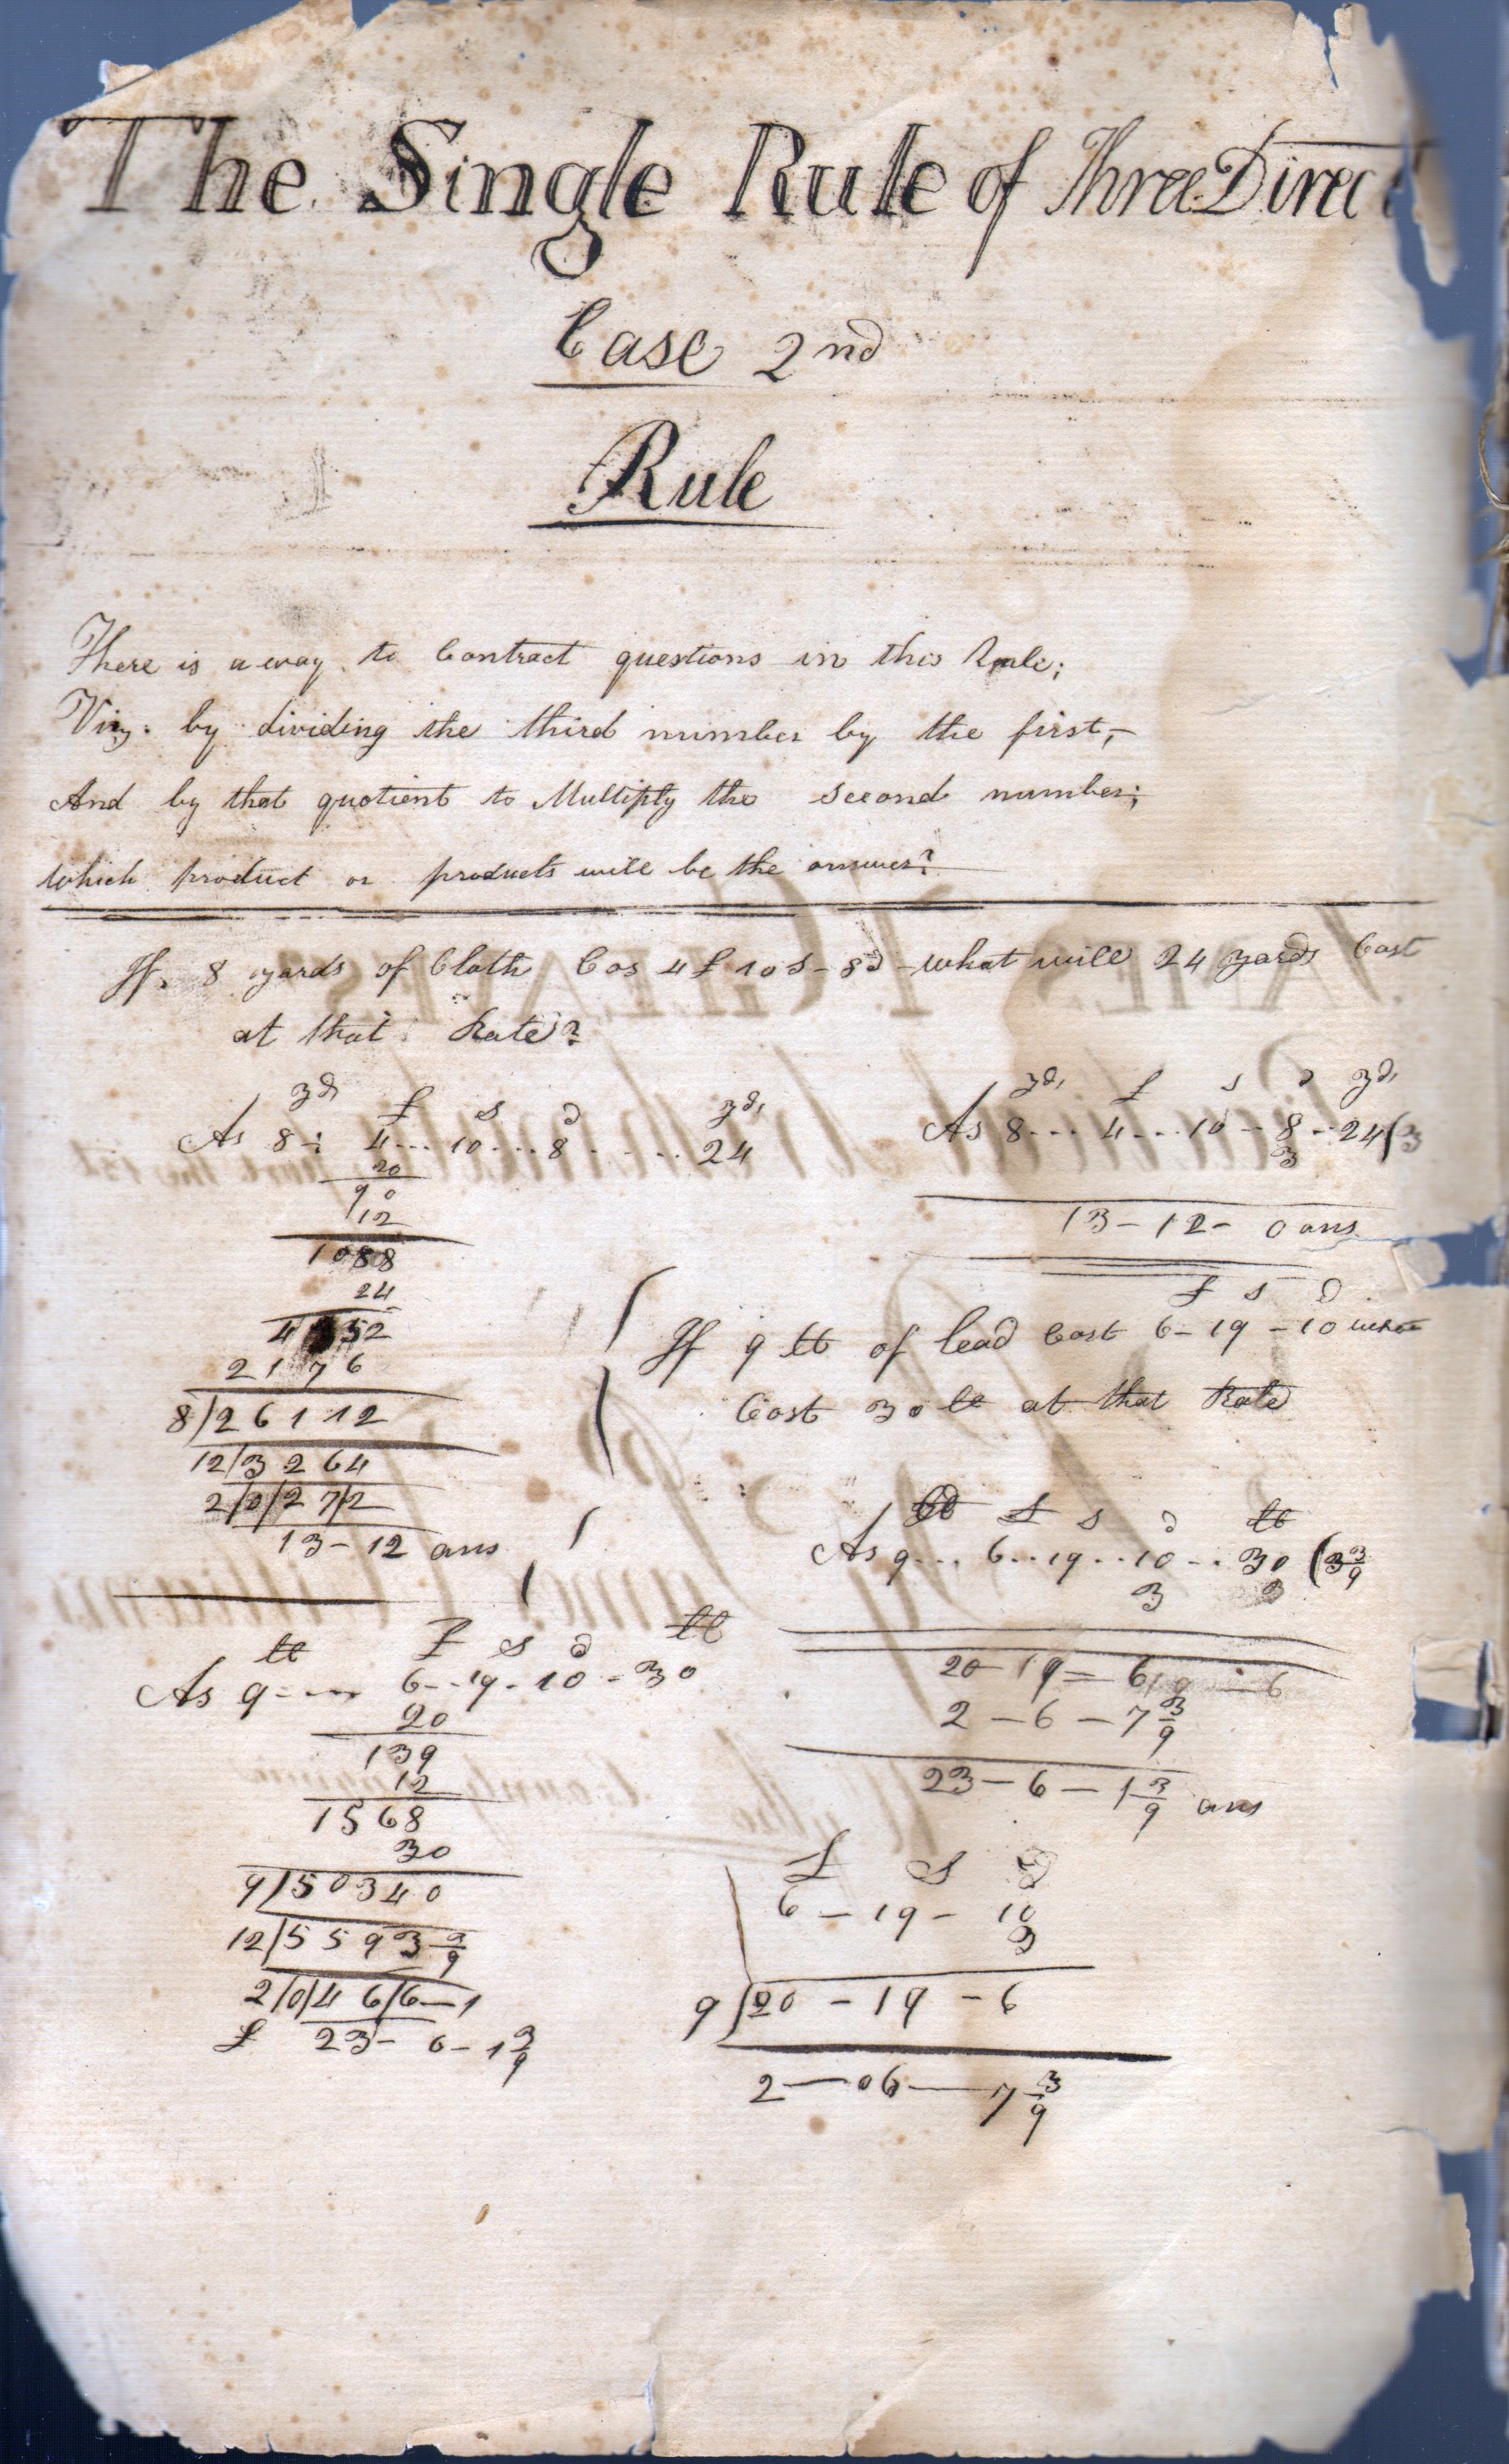 The Single Rule of Three Direct
Case 2nd
Rule
There is a way to Contract questions in this Rule;
Viz. by dividing the third number by the first,
And by that quotient to Multiply the second number;
which product or products will be the answer?
If 8 yards of Cloth Cos 4£ 10s-8d what will 24 yards Cost
at that Rate?
yds £ s d yds
As 8 : 4...10...8.....24
20
90
12
1088
24
4352
2176
8/26112
12/3264
2/0/27/2
13-12 ans
yds £ s d yds
As 8... 4...10--8--24(3
3
13-12- 0 ans
£ s d
If 9 lb of lead Cost 6-19-10 what
Cost 30 lb at that Rate
lb £ s d lb
As 9---- 6--19-10-30
20
139
12
1568
30
9/50340
12/5593 3/9
2/0/46/6-1
£ 23- 6-1 3/9
lb £ s d lb
As 9... 6..19..10...30 (3 3/9
3 3
20-19=6
2-6-7 3/9
23-6-1 3/9 ans
£ s d
6-19-10
3
9/20-19-6
2-06-7 3/9